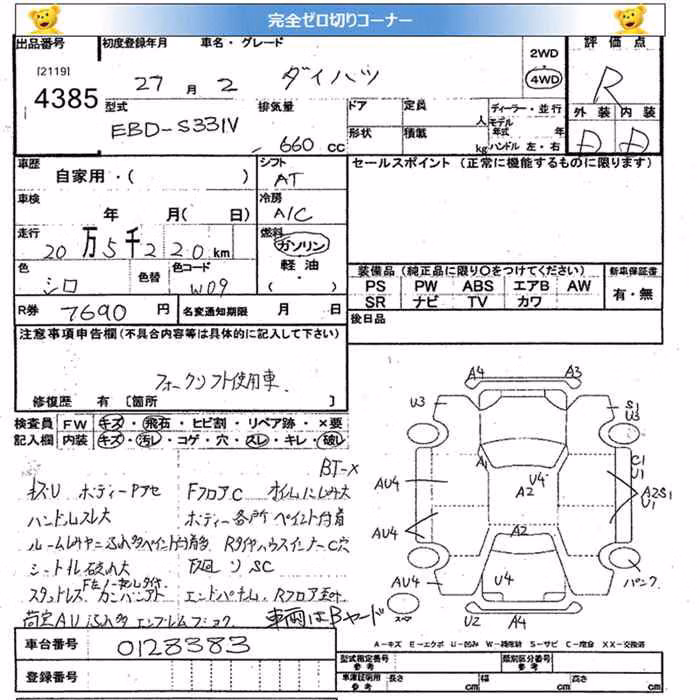 完全ゼロ切りコーナー
出品番号 初度登録年月 車名・グレード 評価点
[2119]
4385
27 月 2 ダイハツ
2WD
4WD
R
型式 排気量 ドア 定員 人 ディーラー・並行 外装 内装
EBD-S331V 660 cc
形状 積載 kg
モデル年式 年
ハンドル 左・右
D D
車歴 シフト セールスポイント (正常に機能するものに限ります)
自家用・( ) AT
車検 冷房
年 月( 日) A/C
走行 燃料
20 万 5 千 220 km ガソリン
軽油
・( )
色 色替 色コード
シロ W09
装備品 (純正品に限り○をつけてください) 新車保証書
PS PW ABS エアB AW 有・無
SR ナビ TV カワ
R券 7690 円 名変通知期限 月 日
後日品
注意事項申告欄(不具合内容等は具体的に記入して下さい)
フォークリフト使用車
修復歴 有 [箇所 ]
検査員 FW キズ・飛石・ヒビ割・リペア跡・×要
記入欄 内装 キズ・汚レ・コゲ・穴・スレ・キレ・破レ
BT-X
キズU ボディーPアセ FフロアC オイルにじみ大
ハンドルスレ大 ボディー各所ペイント付着
Rタイヤハウスインナー C穴
シート
スタッドレス エンドパネル Rフロア
荷室AU 車両はBヤード
A4 A3
U3 S1
U3
A1 U4 C1
U1
AU4 A2 A2S1
U1
AU4 A2
AU4 U4 パンク
U2 A4
A-キズ E-エクボ U-凹み W-補修跡 S-サビ C-腐食 XX-交換済
車台番号 0128383
登録番号
型式指定番号 参考 類別区分番号 参考
車庫証明用 参考 長さ cm 幅 cm 高さ cm